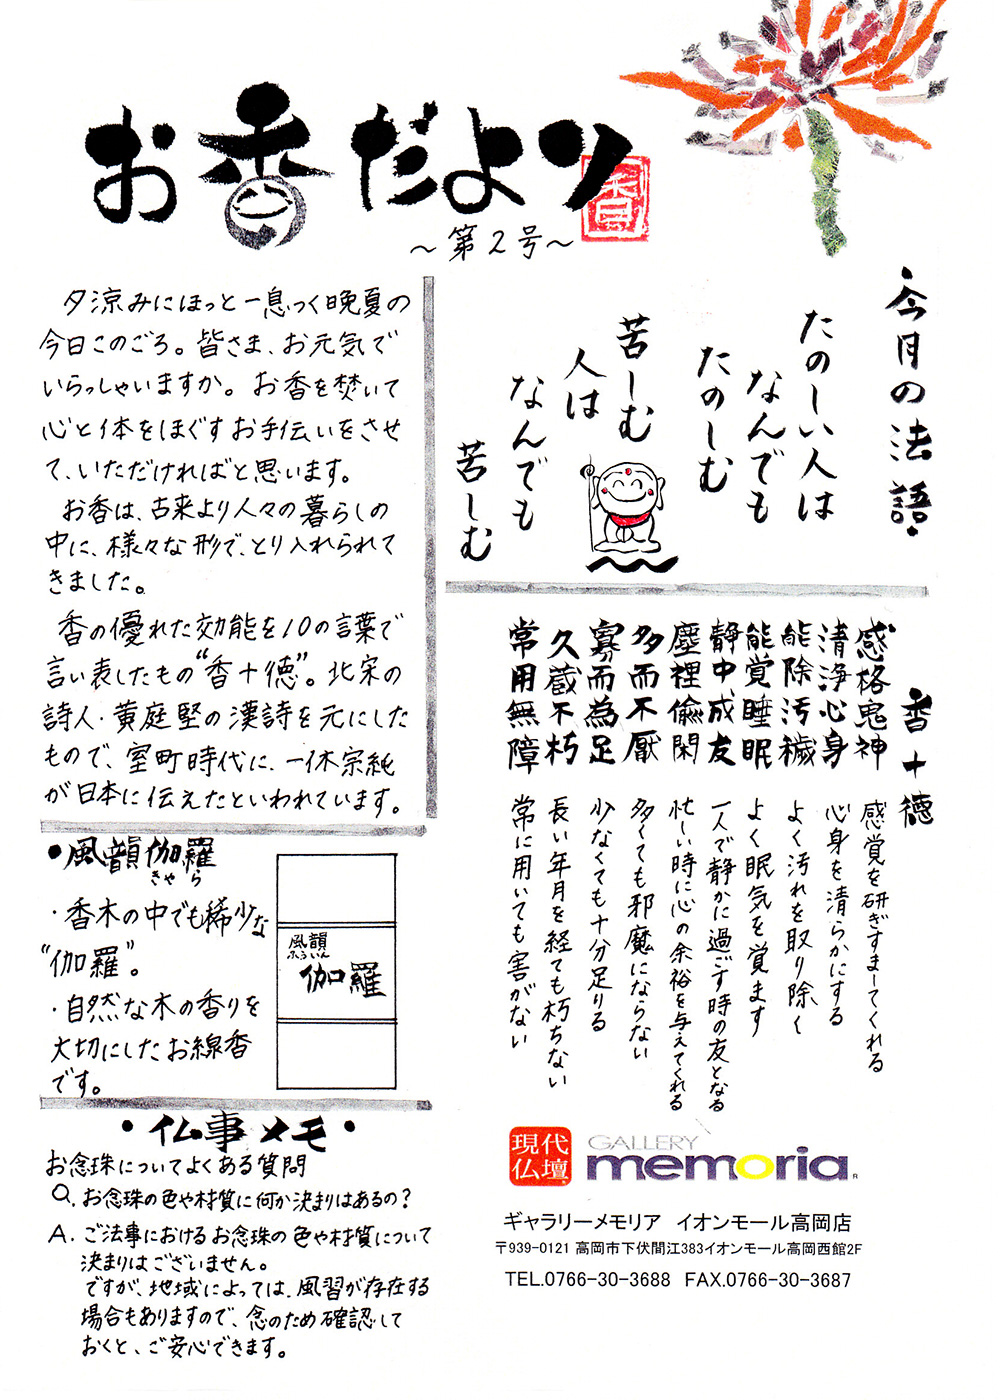 お香だより
香
～第2号～
夕涼みにほっと一息つく晩夏の
今日このごろ。皆さま、お元気で
いらっしゃいますか。お香を焚いて
心と体をほぐすお手伝いをさせ
て、いただければと思います。
お香は、古来より人々の暮らしの
中に、様々な形で、とり入れられて
きました。
香の優れた効能を10の言葉で
言い表したもの“香十徳”。北宋の
詩人・黄庭堅の漢詩を元にした
もので、室町時代に、一休宗純
が日本に伝えたといわれています。
・今月の法語・
たのしい人は
なんでも
たのしむ
苦しむ
人は
なんでも
苦しむ
香十徳
感格鬼神 感覚を研ぎすまーてくれる
清浄心身 心身を清らかにする
能除汚穢 よく汚れを取り除く
能覚睡眠 よく眠気を覚ます
静中成友 一人で静かに過ごす時の友となる
塵裡偸閑 忙しい時に心の余裕を与えてくれる
多而不厭 多くても邪魔にならない
寡而為足 少なくても十分足りる
久蔵不朽 長い年月を経ても朽ちない
常用無障 常に用いても害がない
・風韻伽羅
きゃら
・香木の中でも稀少な
“伽羅”。
・自然な木の香りを
大切にしたお線香
です。
風韻
ふういん
伽羅
・仏事メモ・
お念珠についてよくある質問
Q. お念珠の色や材質に何か決まりはあるの？
A. ご法事におけるお念珠の色や材質について
決まりはございません。
ですが、地域によっては、風習が存在する
場合もありますので、念のため確認して
おくと、ご安心できます。
現代
仏壇
GALLERY
memoria®
ギャラリーメモリア イオンモール高岡店
〒939-0121 高岡市下伏間江383イオンモール高岡西館2F
TEL.0766-30-3688 FAX.0766-30-3687